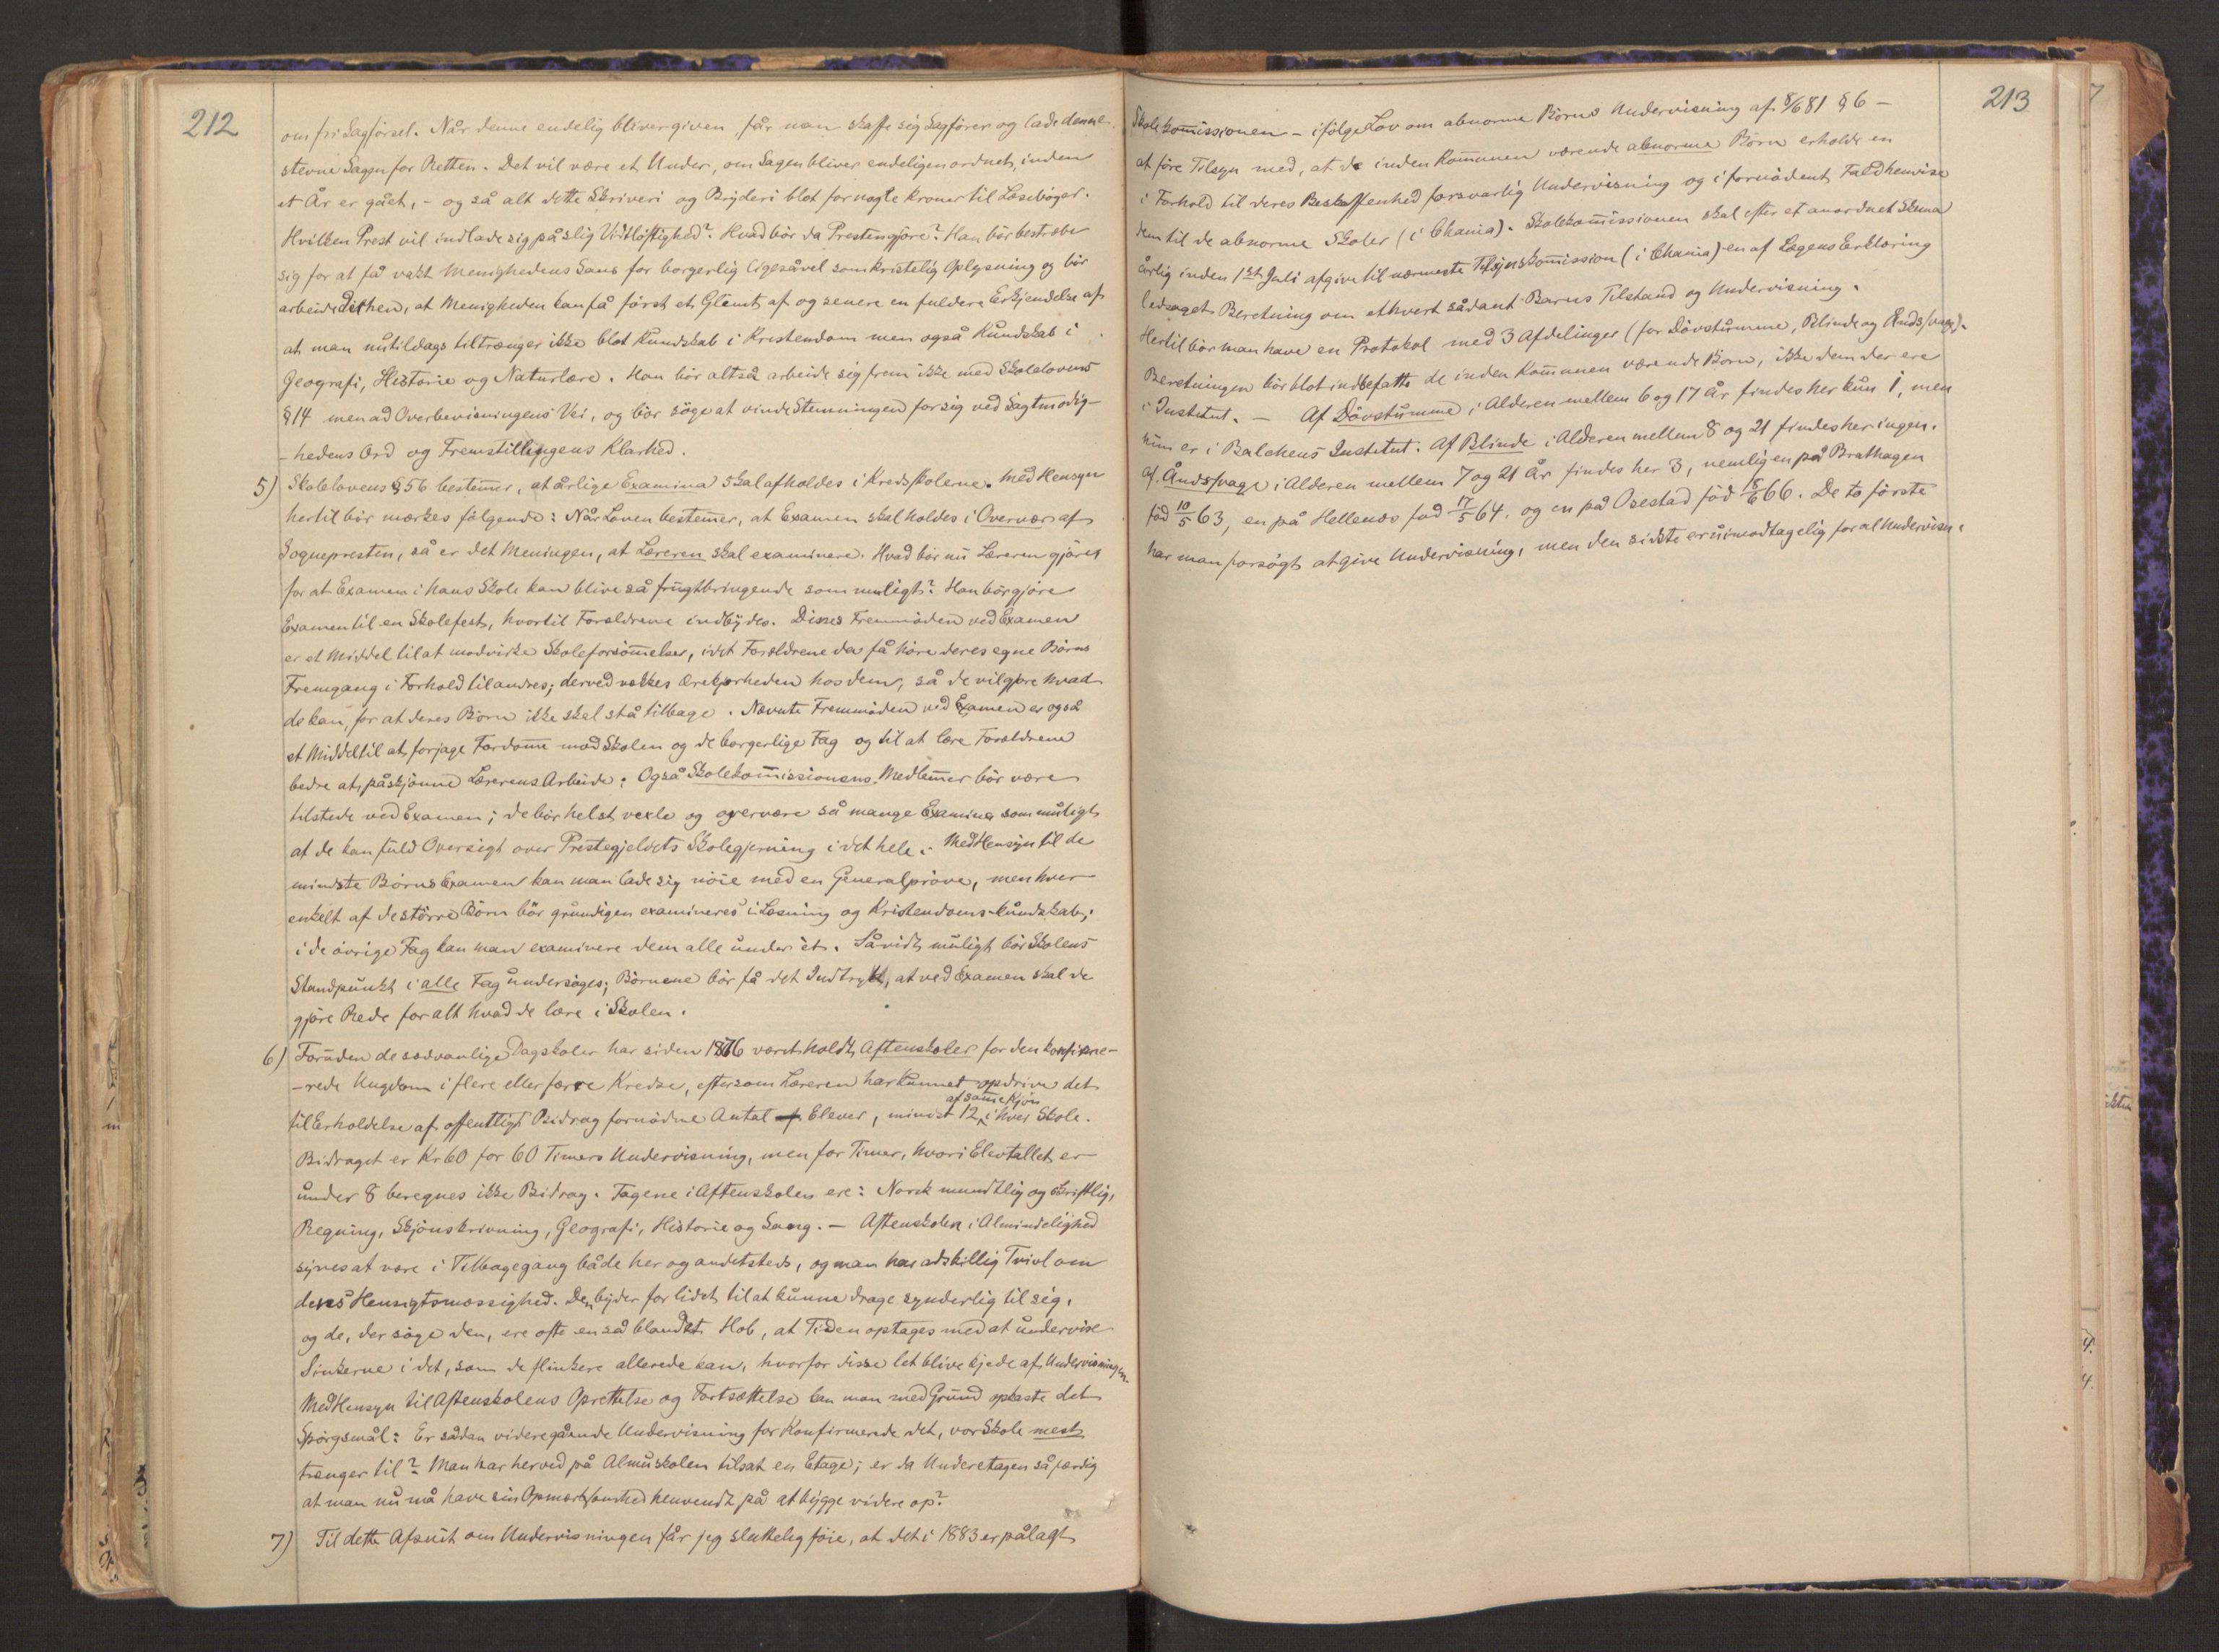 212
om fri Sagförsel. Når denne endelig bliver given, får man skaffe sig Sagfører og lade denne
stevne Sagen for Retten. Det vil være et Under, om Sagen bliver endeligen ordnet, inden
et År er gået, - og så alt dette Skriveri og Bryderi blot for nogle Kroner til Læsebøger.
Hvilken Prest vil indlade sig på slig Vidtløftighed? Hvad bör da Presten gjøre? Han bör bestræbe
sig for at få vakt Menighedens Sans for borgerlig ligesåvel som kristelig Oplysning og bör
arbeide Dithen, at Menigheden kan få först et Glimt af og senere en fuldere Erkjendelse af
at man nutildags tiltrænger ikke blot Kundskab i Kristendom men også Kundskab i
Geografi, Historie og Naturlære. Han bör altså arbeide sig frem ikke med Skolelovens
§ 14 men ad Overbevisningens Vei, og bör söge at vinde Stemningen for sig ved Sagtmodig-
-hedens Ord og Fremstillingens Klarhed.
5) Skolelovens § 56 bestemer, at årlige Examina skal afholdes i Kredsskolerne. Med Hensyn
hertil bör mærkes følgende: Når Loven bestemer, at Examen skal holdes i Overvær af
Sognepresten, så er det Meningen, at Læreren skal examinere. Hvad bör nu Læreren gjöre,
for at Examen i hans Skole kan blive så frugtbringende som muligt? Han bör gjöre
Examen til en Skolefest, hvortil Forældrene indbydes. Disses Fremmöden ved Examen
er et Middel til at modvirke Skoleforsömelser, idet Forældrene da få höre deres egne Börns
Fremgang i Forhold til andres; derved vækkes Ærekjærheden hos dem, så de vil gjöre hvad
de kan, for at deres Börn ikke skal stå tilbage. Nævnte Fremmöden ved Examen er også
et Middel til at forjage Fordome mod Skolen og de borgerlige Fag og til at lære Forældrene
bedre at påskjönne Lærerens Arbeide. Også Skolekomissionens Medlemer bör være
tilstede ved Examen; de bör helst vexle og overvære så mange Examina som muligt,
at de kan fuld Oversigt over Prestegjeldets Skolegjerning i det hele. Med Hensyn til de
mindste Börns Examen kan man lade sig nöie med en Generalpröve, men hver
enkelt af de större Börn bör grundigen examineres i Læsning og Kristendoms-kundskab;
i de övrige Fag kan man examinere dem alle under èt. Såvidt muligt bör Skolens
Standpunkt i alle Fag undersöges; Börnene bör få det Indtryk, at ved Examen skal de
gjöre Rede for alt hvad de lære i Skolen.
6) Foruden de sædvanlige Dagskoler har siden 1876 været holdt Aftenskoler for den konfirme-
-rede Ungdom i flere eller færre Kredse, eftersom Læreren har kunnet opdrive det
af same Kjön
til Erholdelse af offentligt Bidrag fornödne Antal Elever, mindst 12 i hver Skole.
Bidraget er Kr 60 for 60 Timers Undervisning, men for Timer, hvori Elevtallet er
under 8 beregnes ikke Bidrag. Fagene i Aftenskolen ere: Norsk mundtlig og skriftlig,
Regning, Skjönskrivning, Geografi, Historie og Sang. - Aftenskolen i Almindelighed
synes at være i Tilbagegang både her og andetsteds, og man har adskillig Tvivl om
deres Hensigtsmæssighed. Den byder for lidet til at kunne drage synderlig til sig,
og de, der söge den, ere ofte en så blandet Hob, at Tiden optages med at undervise
Sinkerne i det, som de flinkere allerede kan, hvorfor disse let blive kjede af Undervisningen.
Med Hensyn til Aftenskolens Oprettelse og Fortsættelse kan man med Grund opkaste det
Spörgsmål: Er sådan videregående Undervisning for Konfirmerede det, vor Skole mest
trænger til? Man har herved på Almuskolen tilsat en Etage; er da Underetagen så færdig
at man nu må have sin Opmærksomhed henvendt på at bygge videre op?
7) Til dette Afsnit om Undervisningen får jeg sluttelig föie, at det i 1883 er pålagt
213
Skolekomissionen - ifölge Lov om abnorme Börns Undervisning af 8/6 81 § 6 -
at före Tilsyn med, at de inden Komunen værende abnorme Börn erholde en
i Forhold til deres Beskaffenhed forsvarlig Undervisning og i fornödent Fald henvise
dem til de abnorme Skoler (i Chania). Skolekomissionen skal efter et anordnet Skema
årlig inden 1st Juli afgive til nærmeste Tilsynskomission (i Chania) en af Lægens Erklæring
ledsaget Beretning om ethvert sådant Barns Tilstand og Undervisning.
Hertil bör man have en Protokol med 3 Afdelinger (for Dövstumme, Blinde og Åndssvage).
Beretningen bör blot indbefatte de inden Komunen værende Börn, ikke dem der ere
i Institut. - Af Dövstumme i Alderen mellem 6 og 17 År findes her kun 1, men
hun er i Balchens Institut. Af Blinde i Alderen mellem 8 og 21 findes her ingen.
Af Åndssvage i Alderen mellem 7 og 21 År findes her 3, nemlig en på Brathagen
föd 10/5 63, en på Hellenes föd 17/5 64, og en på Osestad föd 18/6 66. De to förste
har man forsögt at give Undervisning, men den sidste er uimodtagelig for al Undervisn.